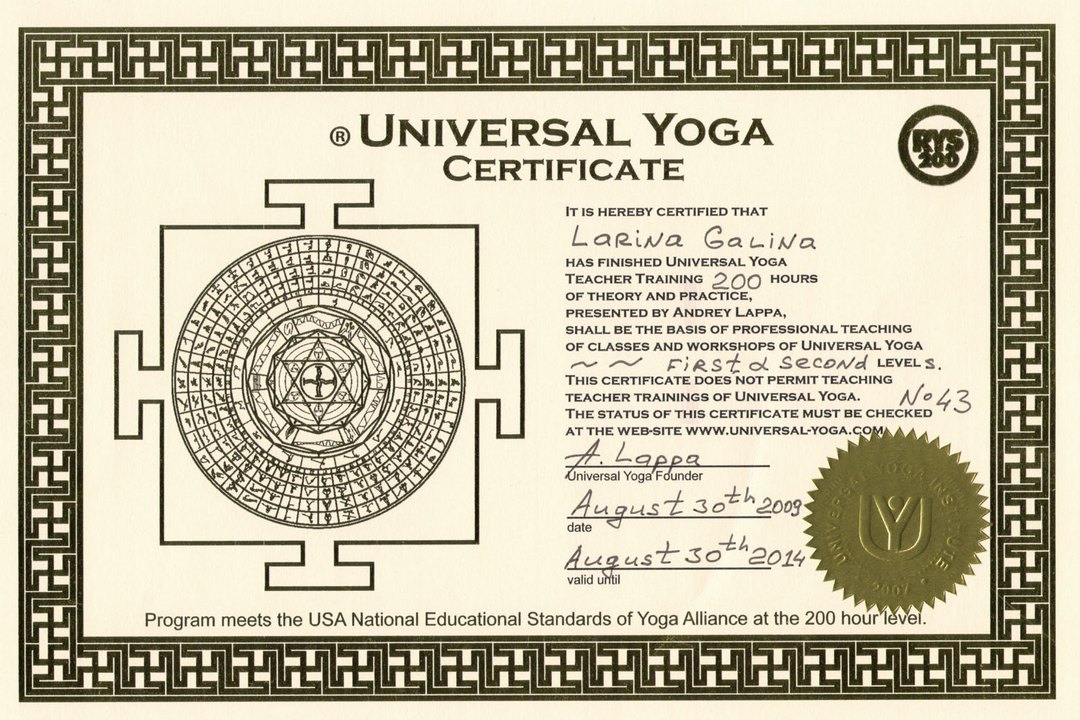 ® UNIVERSAL YOGA
CERTIFICATE
RYS
200
IT IS HEREBY CERTIFIED THAT
Larina Galina
HAS FINISHED UNIVERSAL YOGA
TEACHER TRAINING 200 HOURS
OF THEORY AND PRACTICE,
PRESENTED BY ANDREY LAPPA,
SHALL BE THE BASIS OF PROFESSIONAL TEACHING
OF CLASSES AND WORKSHOPS OF UNIVERSAL YOGA
~ ~ First & second LEVELs.
THIS CERTIFICATE DOES NOT PERMIT TEACHING
TEACHER TRAININGS OF UNIVERSAL YOGA.
No 43
THE STATUS OF THIS CERTIFICATE MUST BE CHECKED
AT THE WEB-SITE WWW.UNIVERSAL-YOGA.COM
A. Lappa
Universal Yoga Founder
August 30th 2009
date
August 30th 2014
valid until
UNIVERSAL YOGA INSTITUTE
2007
Program meets the USA National Educational Standards of Yoga Alliance at the 200 hour level.